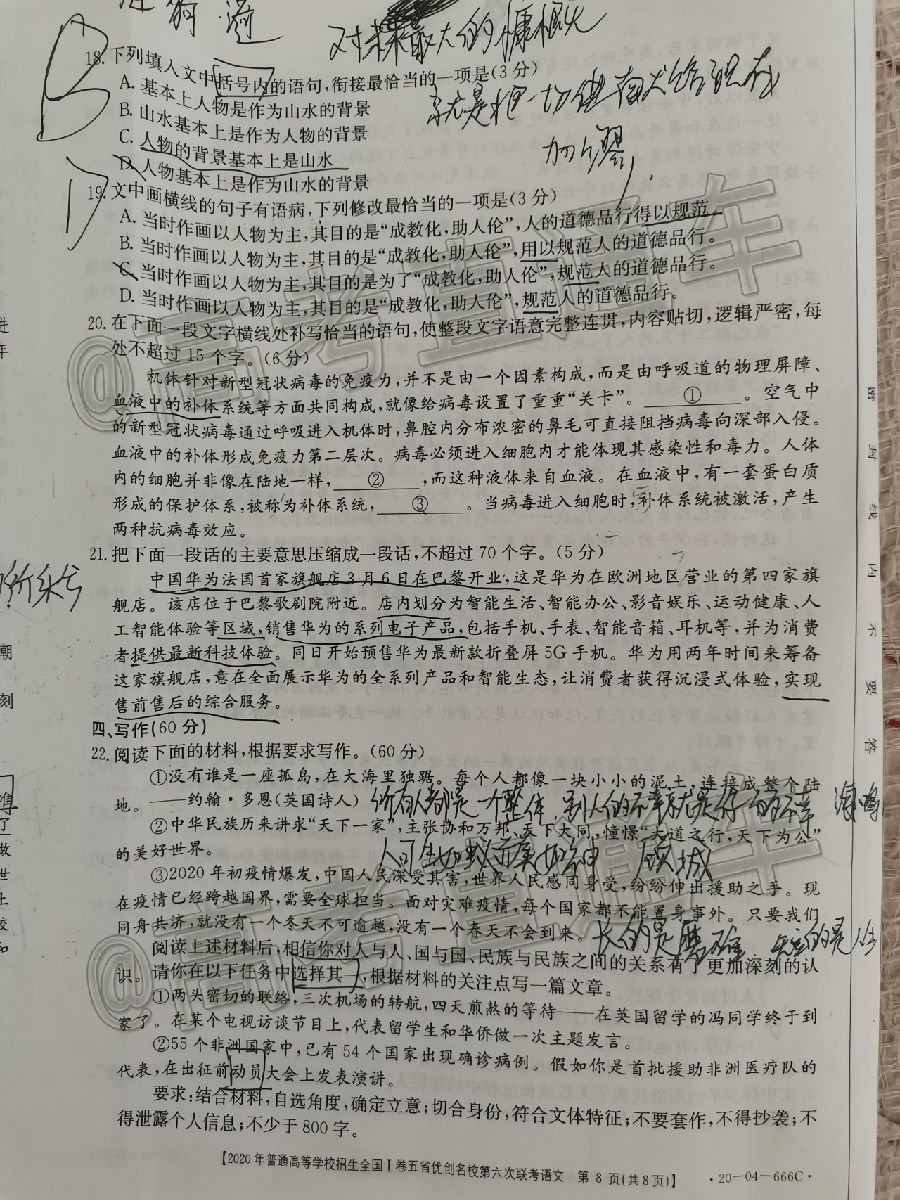 对未来最大的慷慨
就是把一切都献给现在
加缪
B
18. 下列填入文中括号内的语句,衔接最恰当的一项是(3分)
A. 基本上人物是作为山水的背景
B. 山水基本上是作为人物的背景
C. 人物的背景基本上是山水
D. 人物基本上是作为山水的背景
D
19. 文中画横线的句子有语病,下列修改最恰当的一项是(3分)
A. 当时作画以人物为主,其目的是“成教化,助人伦”,人的道德品行得以规范。
B. 当时作画以人物为主,其目的是“成教化,助人伦”,用以规范人的道德品行。
C. 当时作画以人物为主,其目的是为了“成教化,助人伦”,规范人的道德品行。
D. 当时作画以人物为主,其目的是“成教化,助人伦”,规范人的道德品行。
20. 在下面一段文字横线处补写恰当的语句,使整段文字语意完整连贯,内容贴切,逻辑严密,每
处不超过15个字。(6分)
机体针对新型冠状病毒的免疫力,并不是由一个因素构成,而是由呼吸道的物理屏障、
血液中的补体系统等方面共同构成,就像给病毒设置了重重“关卡”。 ① 。空气中
的新型冠状病毒通过呼吸进入机体时,鼻腔内分布浓密的鼻毛可直接阻挡病毒向深部入侵。
血液中的补体形成免疫力第二层次。病毒必须进入细胞内才能体现其感染性和毒力。人体
内的细胞并非像在陆地一样, ② ,而这种液体来自血液。在血液中,有一套蛋白质
形成的保护体系,被称为补体系统, ③ 。当病毒进入细胞时,补体系统被激活,产生
两种抗病毒效应。
21. 把下面一段话的主要意思压缩成一段话,不超过70个字。(5分)
中国华为法国首家旗舰店3月6日在巴黎开业,这是华为在欧洲地区营业的第四家旗
舰店。该店位于巴黎歌剧院附近。店内划分为智能生活、智能办公、影音娱乐、运动健康、人
工智能体验等区域,销售华为的系列电子产品,包括手机、手表、智能音箱、耳机等,并为消费
者提供最新科技体验。同日开始预售华为最新款折叠屏5G手机。华为用两年时间来筹备
这家旗舰店,意在全面展示华为的全系列产品和智能生态,让消费者获得沉浸式体验,实现
售前售后的综合服务。
四、写作(60分)
22. 阅读下面的材料,根据要求写作。(60分)
①没有谁是一座孤岛,在大海里独踞。每个人都像一块小小的泥土,连接成整个陆
地。——约翰·多恩(英国诗人)
所有人都是一个整体,别人的不幸就是你的不幸 海明
②中华民族历来讲求“天下一家”,主张协和万邦,天下大同,憧憬“大道之行,天下为公”
的美好世界。
顾城
③2020年初疫情爆发,中国人民深受其害,世界人民感同身受,纷纷伸出援助之手。现
在疫情已经跨越国界,需要全球担当。面对灾难疫情,每个国家都不能置身事外。只要我们
同舟共济,就没有一个冬天不可逾越,没有一个春天不会到来。
阅读上述材料后,相信你对人与人、国与国、民族与民族之间的关系有了更加深刻的认
识。请你在以下任务中选择其一,根据材料的关注点写一篇文章。
①两头密切的联络,三次机场的转航,四天煎熬的等待——在英国留学的冯同学终于到
家了。在某个电视访谈节目上,代表留学生和华侨做一次主题发言。
②55个非洲国家中,已有54个国家出现确诊病例。假如你是首批援助非洲医疗队的
代表,在出征前动员大会上发表演讲。
要求:结合材料,自选角度,确定立意;切合身份,符合文体特征;不要套作,不得抄袭;不
得泄露个人信息;不少于800字。
【2020年普通高等学校招生全国Ⅰ卷五省优创名校第六次联考语文 第8页(共8页)】 ·20-04-666C·
密封线内不要答
@高考直通车
@高考直通车